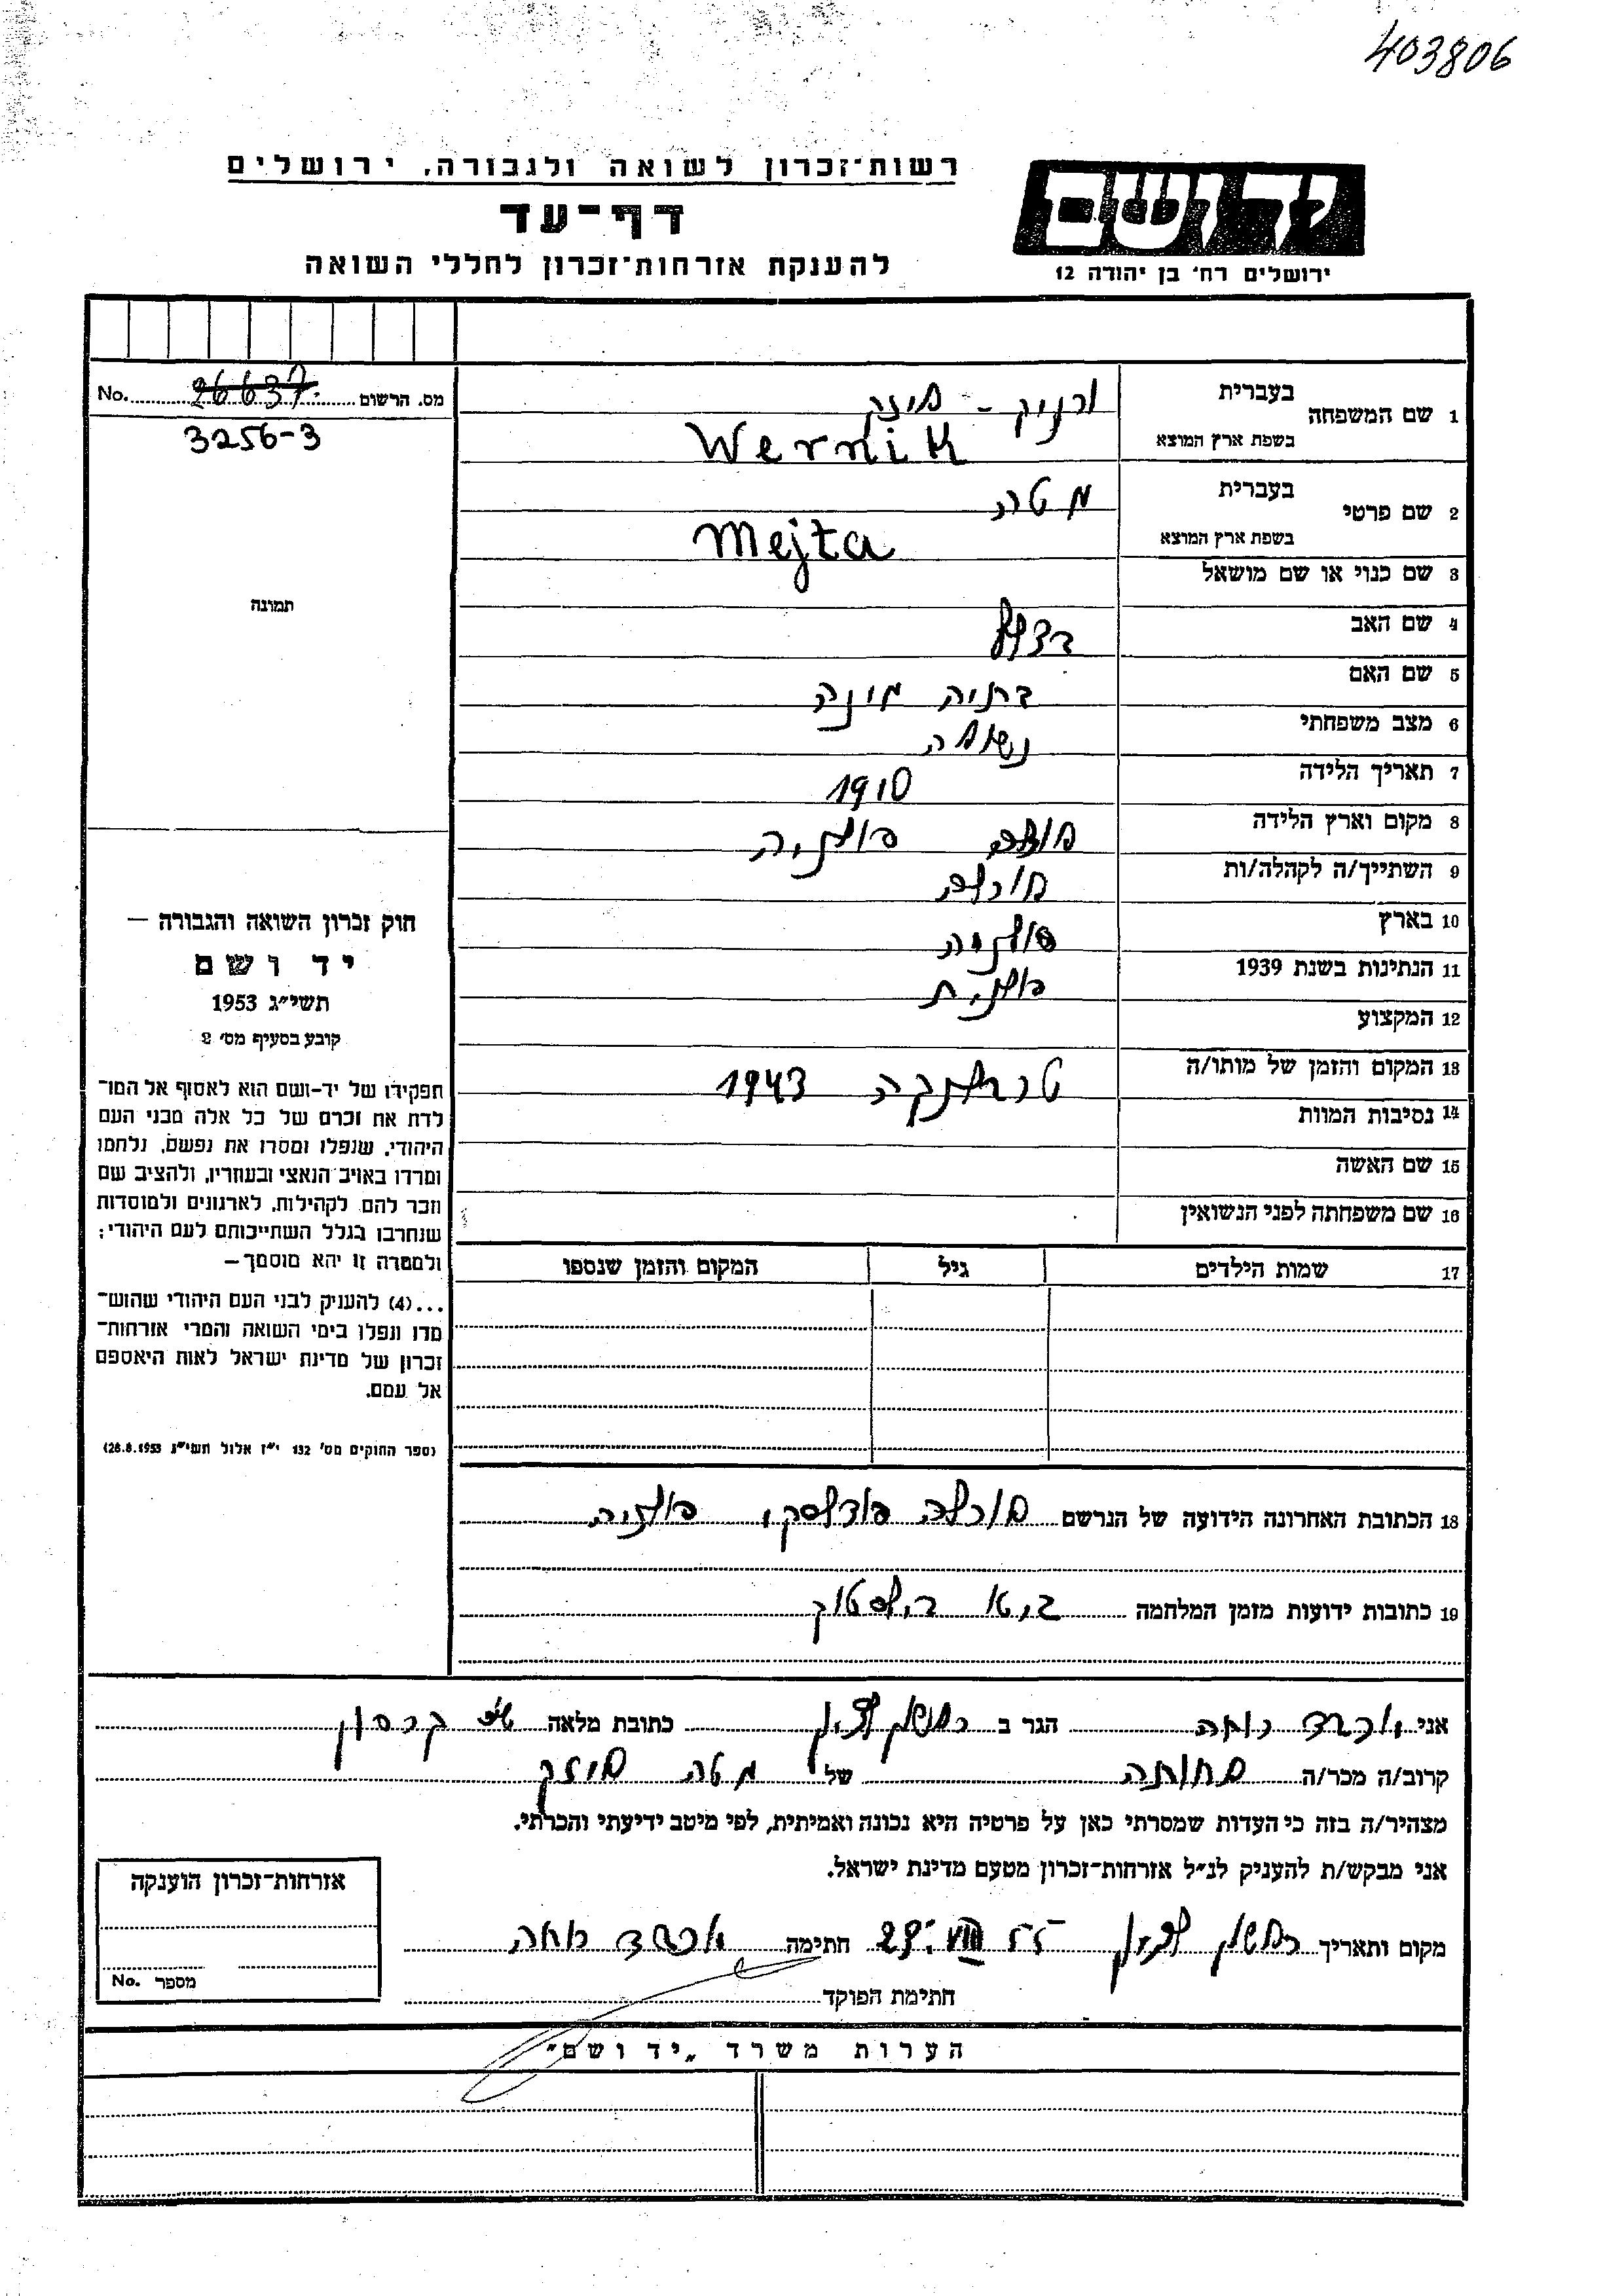 403806
רשות־זכרון לשואה ולגבורה, ירושלים
דף־עד
להענקת אזרחות־זכרון לחללי השואה
יד ושם
ירושלים רח׳ בן יהודה 12
מס. הרשום 26637 No.
3256-3
תמונה
1 שם המשפחה
בעברית ורניק -
בשפת ארץ המוצא Wernik
2 שם פרטי
בעברית מטה
בשפת ארץ המוצא Mejta
3 שם כנוי או שם מושאל
4 שם האב בצלאל
5 שם האם בתיה מינה
6 מצב משפחתי נשואה
7 תאריך הלידה 1910
8 מקום וארץ הלידה פולניה
9 השתייך/ה לקהלה/ות
10 בארץ פולניה
11 הנתינות בשנת 1939 פולנית
12 המקצוע
13 המקום והזמן של מותו/ה טרבלינקה 1943
14 נסיבות המוות
15 שם האשה
16 שם משפחתה לפני הנשואין
17 שמות הילדים גיל המקום והזמן שנספו
חוק זכרון השואה והגבורה —
יד ושם
תשי״ג 1953
קובע בסעיף מס׳ 2
תפקידו של יד-ושם הוא לאסוף אל המו־
לדת את זכרם של כל אלה מבני העם
היהודי, שנפלו ומסרו את נפשם, נלחמו
ומרדו באויב הנאצי ובעוזריו, ולהציב שם
וזכר להם לקהילות, לארגונים ולמוסדות
שנחרבו בגלל השתייכותם לעם היהודי;
ולמטרה זו יהא מוסמך —
...(4) להעניק לבני העם היהודי שהוש־
מדו ונפלו בימי השואה והמרי אזרחות־
זכרון של מדינת ישראל לאות היאספם
אל עמם.
(ספר החוקים מס׳ 132 י״ז אלול תשי״ג 28.8.1953)
18 הכתובת האחרונה הידועה של הנרשם פודלסקי, פולניה
19 כתובות ידועות מזמן המלחמה גיטו ביאליסטוק
אני הגר ב ראשון לציון כתובת מלאה
קרוב/ה מכר/ה של מטה
מצהיר/ה בזה כי העדות שמסרתי כאן על פרטיה היא נכונה ואמיתית, לפי מיטב ידיעתי והכרתי.
אני מבקש/ת להעניק לנ״ל אזרחות־זכרון מטעם מדינת ישראל.
מקום ותאריך ראשון לציון 29.VIII 55 חתימה
חתימת הפוקד
אזרחות־זכרון הוענקה
מספר No.
הערות משרד „יד ושם״